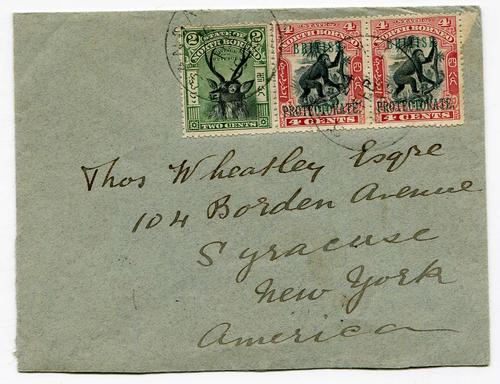 2 STATE OF 2
NORTH BORNEO
TWO CENTS
4 STATE OF 4
NORTH BORNEO
BRITISH
PROTECTORATE.
4 CENTS
4 STATE OF 4
NORTH BORNEO
BRITISH
PROTECTORATE.
4 CENTS
Thos Wheatley Esqre
104 Borden Avenue
Syracuse
New York
America